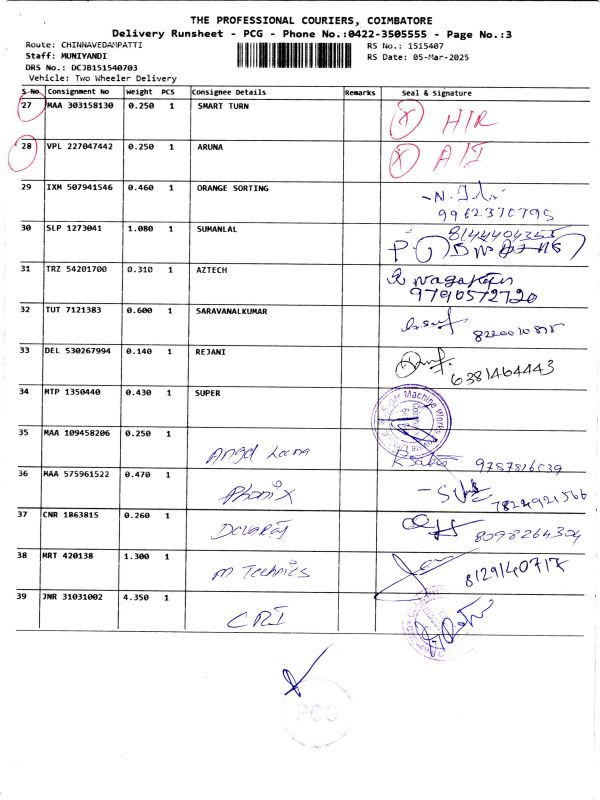 THE PROFESSIONAL COURIERS, COIMBATORE
Delivery Runsheet - PCG - Phone No.:0422-3505555 - Page No.:3
Route: CHINNAVEDAMPATTI RS No.: 1515407
Staff: MUNIYANDI RS Date: 05-Mar-2025
DRS No.: DCJB151540703
Vehicle: Two Wheeler Delivery
S No Consignment No Weight PCS Consignee Details Remarks Seal & Signature
27 MAA 303158130 0.250 1 SMART TURN X H/R
28 VPL 227047442 0.250 1 ARUNA X A/I
29 IXM 507941546 0.460 1 ORANGE SORTING
9962370795
30 SLP 1273041 1.080 1 SUMANLAL 8144404355
31 TRZ 54201700 0.310 1 AZTECH
9790572720
32 TUT 7121383 0.600 1 SARAVANALKUMAR
33 DEL 530267994 0.140 1 REJANI 6381464443
34 MTP 1350440 0.430 1 SUPER
35 MAA 109458206 0.250 1
36 MAA 575961522 0.470 1 Phonix
7824921566
37 CNR 1863815 0.260 1 Devaraj 8098264304
38 MRT 420138 1.300 1 M Technics
39 JNR 31031002 4.350 1 CRI
PCG